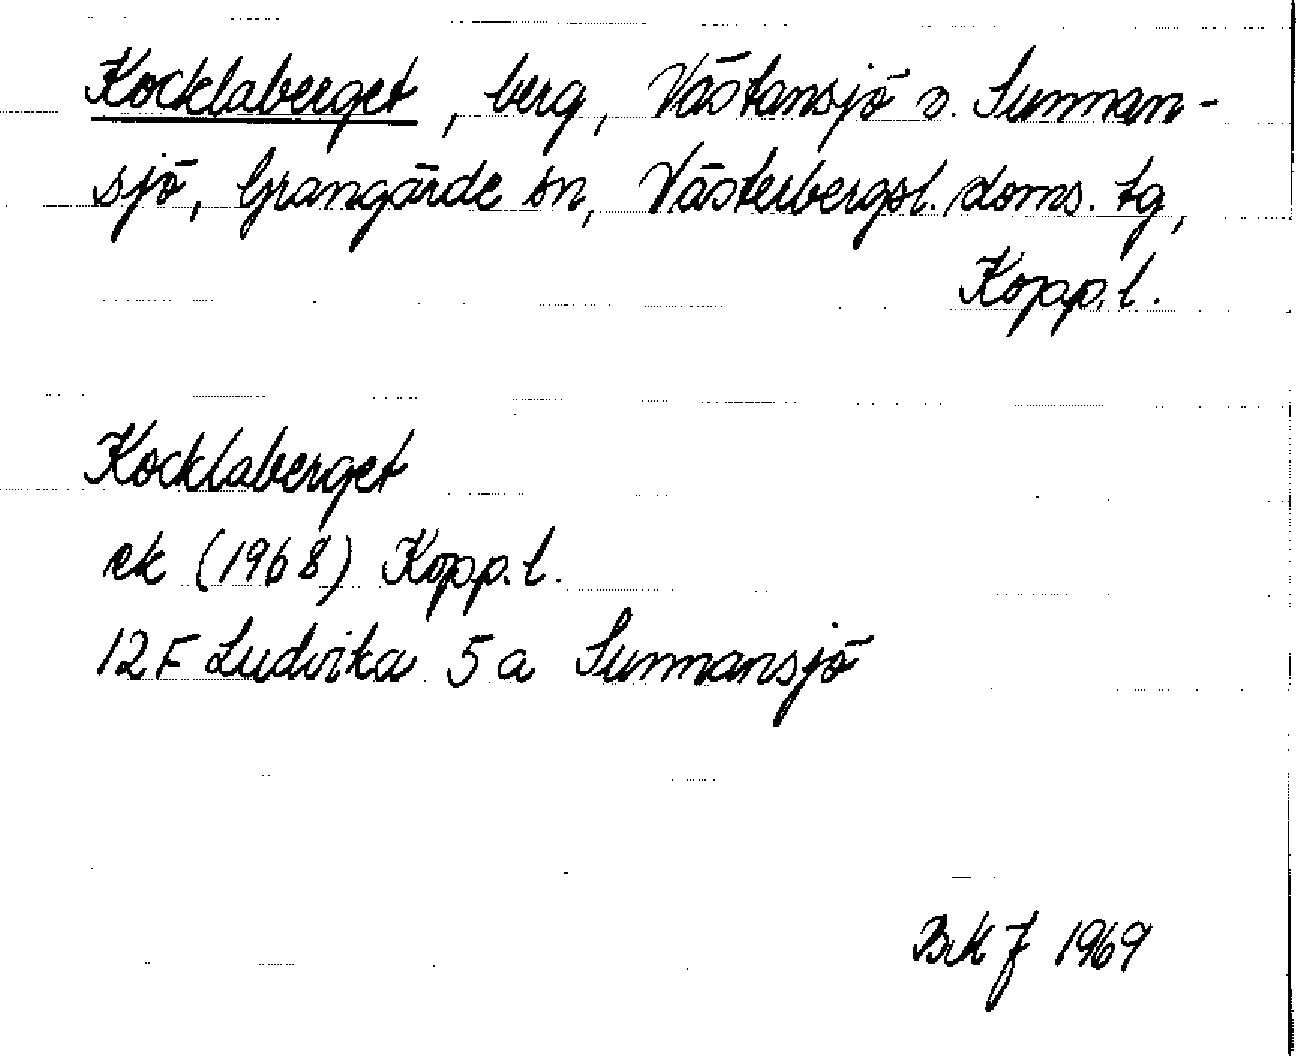 Kocklaberget, berg, Västansjö o. Sunnan-
sjö, Grangärde sn, Västerbergsl. doms. tg,
Kopp. l.
Kocklaberget
ek (1968) Kopp. l.
12F Ludvika 5a Sunnansjö
1969